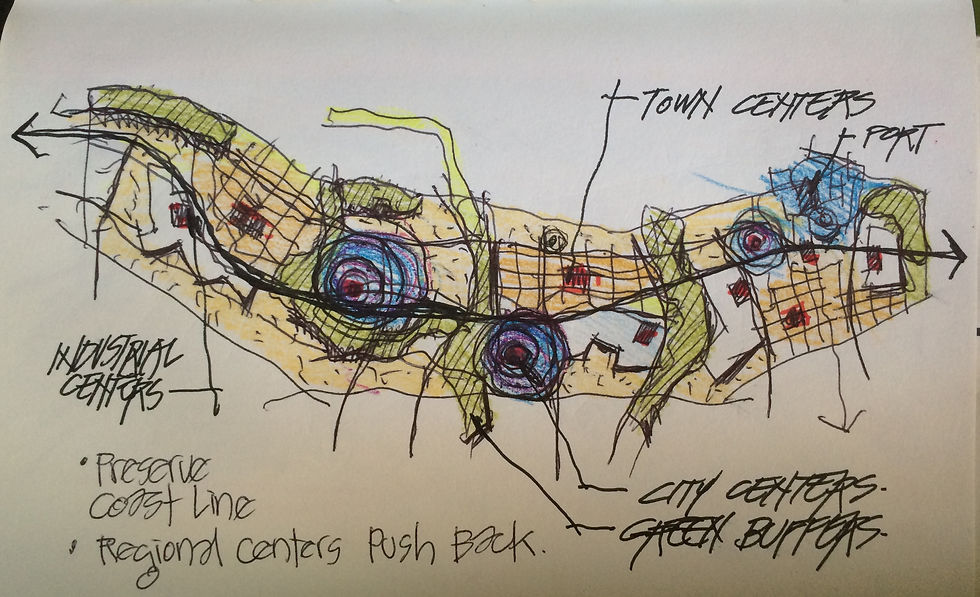 TOWN CENTERS
PORT
INDUSTRIAL
CENTERS
• Preserve
Coast Line
• Regional Centers Push Back.
CITY CENTERS.
GREEN BUFFERS.